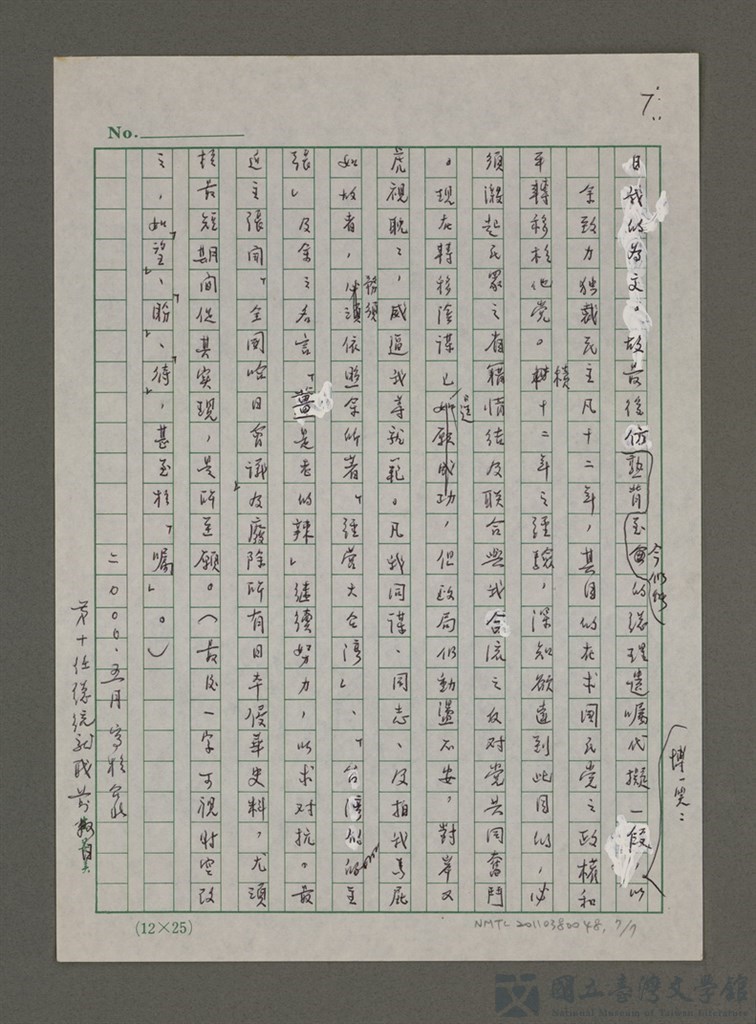 7
No.
日我的為文。故最後仿熟背至今仍能的總理遺囑代擬一段,以
博一笑:
余致力独裁民主凡十二年,其目的在求国民党之政權和
平轉移於他党。積十二年之經驗,深知欲達到此目的,必
須激起民眾之省籍情结及联合與我合流之反对党共同奮鬥
。現在轉移陰謀已是成功,但政局仍動盪不安,對岸又
虎視眈々,威逼我等就範。凡我同謀、同志、及拍我馬屁
如故者,務須依照余所著「經营大台湾」、「台湾的主
張」及余之名言「薑是老的辣」继續努力,以求对抗。最
近主張開「全国㕵日會議」及廢除所有日本侵華史料,尤須
於最短期间促其实現,是所至願。(最后一字可視时空改
之,如「望」、「盼」、「待」,甚至於「囑」。)
二〇〇〇.五月寫於
第十任總統就職前数日
(12×25)
NMTL 20110380048, 7/7
國立臺灣文學館
National Museum of Taiwan Literature